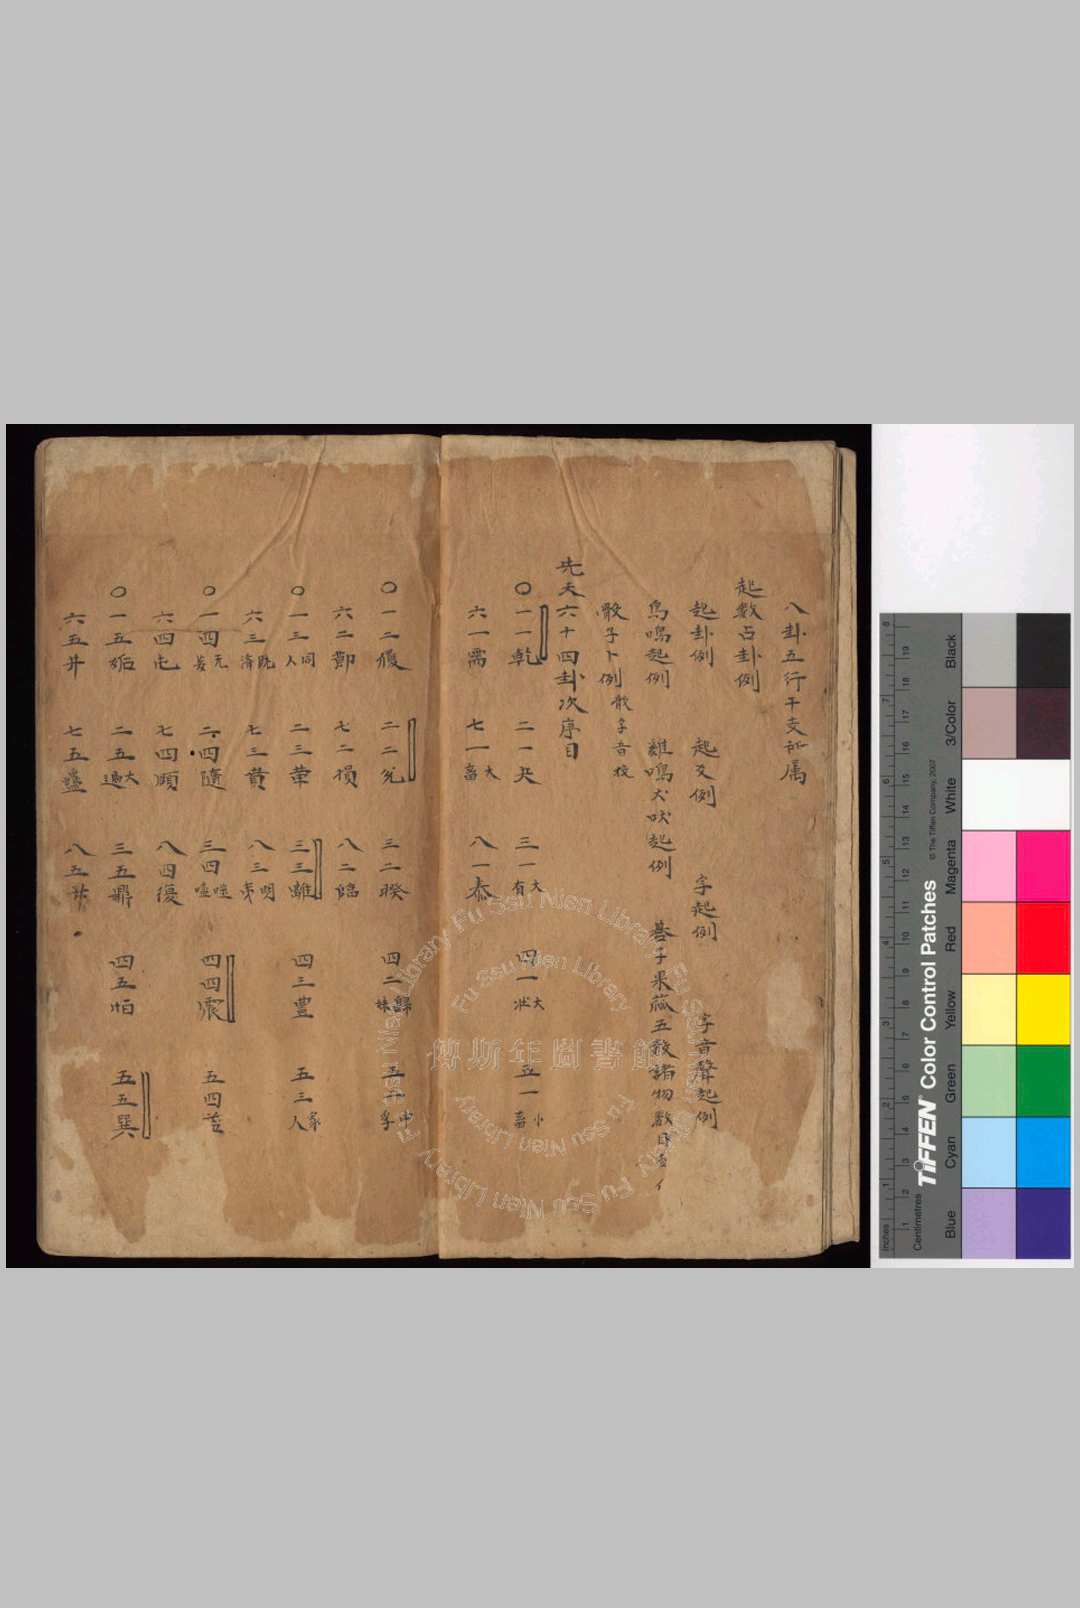 八卦五行干支所属
起数占卦例
起卦例 起爻例 字起例 字音聲起例
鳥鳴起例 雞鳴犬吠起例 碁子果蔵五穀諸物数目
骰子卜例 骰子音校
先天六十四卦次序目
〇一一乾 二一夬 三一大有 四一大壯 五一小畜
六一需 七一大畜 八一泰
〇一二履 二二兌 三二睽 四二歸妹 五二中孚
六二節 七二損 八二臨
〇一三同人 二三革 三三離 四三豊 五三家人
六三既濟 七三賁 八三明夷
〇一四无妄 二四隨 三四噬嗑 四四震 五四益
六四屯 七四頤 八四復
〇一五姤 二五大過 三五鼎 四五恒 五五巽
六五井 七五蠱 八五升
傅斯年圖書館
Fu Ssu Nien Library
Fu Ssu Nien Library
Fu Ssu Nien Library
Fu Ssu Nien Library
TIFFEN® Color Control Patches
© The Tiffen Company, 2007
Inches
Centimetres
Blue Cyan Green Yellow Red Magenta White 3/Color Black